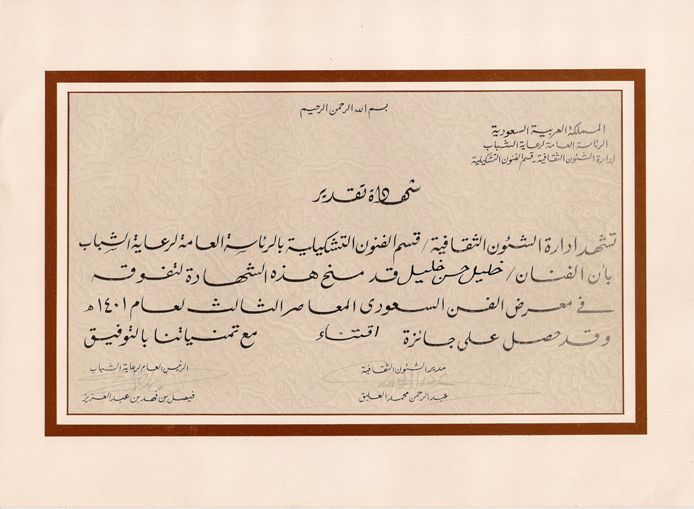 بسم الله الرحمن الرحيم
المملكة العربية السعودية
الرئاسة العامة لرعاية الشباب
إدارة الشئون الثقافية - قسم الفنون التشكيلية
شهادة تقدير
تشهد ادارة الشئون الثقافية / قسم الفنون التشكيلية بالرئاسة العامة لرعاية الشباب
بأن الفنان / خليل حسن خليل قد منح هذه الشهادة لتفوقه
في معرض الفن السعودى المعاصر الثالث لعام ١٤٠١ هـ
وقد حصل على جائزة اقتناء مع تمنياتنا بالتوفيق
مدير الشئون الثقافية
عبد الرحمن محمد العليق
الرئيس العام لرعاية الشباب
فيصل بن فهد بن عبد العزيز